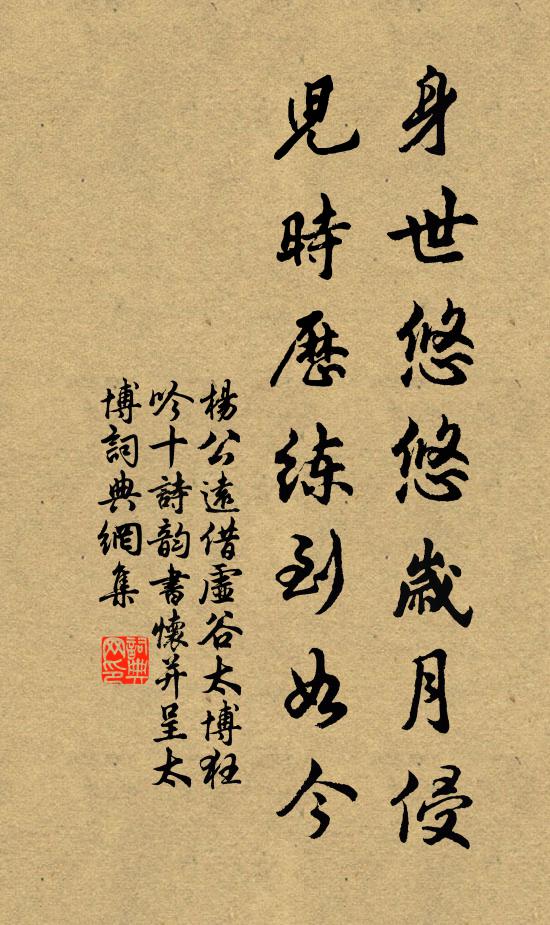 身世悠悠歲月侵
兒時歷練到如今
楊公遠借虛谷太博狂
吟十詩韵書懷并呈太
博詞典網集
詞典
网印